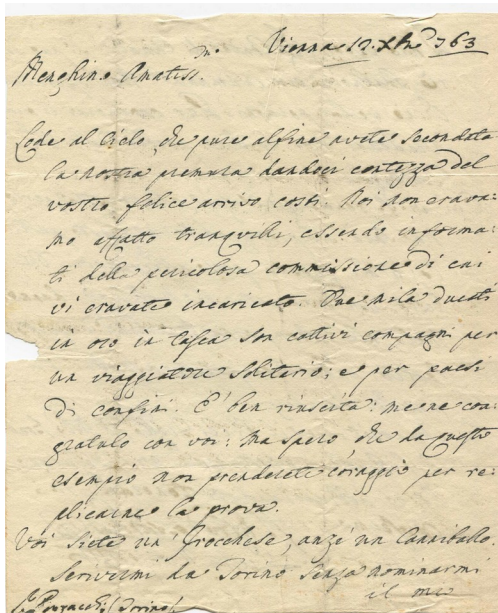 Vienna 12. Xbre 763
Menghino Amatiss.mo
Lode al Cielo, che pure alfine avete secondata
la nostra premura dandoci contezza del
vostro felice arrivo costì. Noi non erava:
mo affatto tranquilli, essendo informa:
ti della pericolosa commissione di cui
vi eravate incaricato. Due mila ducati
in oro in tasca son cattivi compagni per
un viaggiatore solitario; e per paesi
di confini. È ben riuscita: me ne con
gratulo con voi: ma spero, che da questo
esempio non prenderete coraggio per re:
plicarne la prova.
Voi siete un' Irocchese, anzi un Canniballo.
Scrivermi da Torino senza nominarmi
il mio
(Torino)